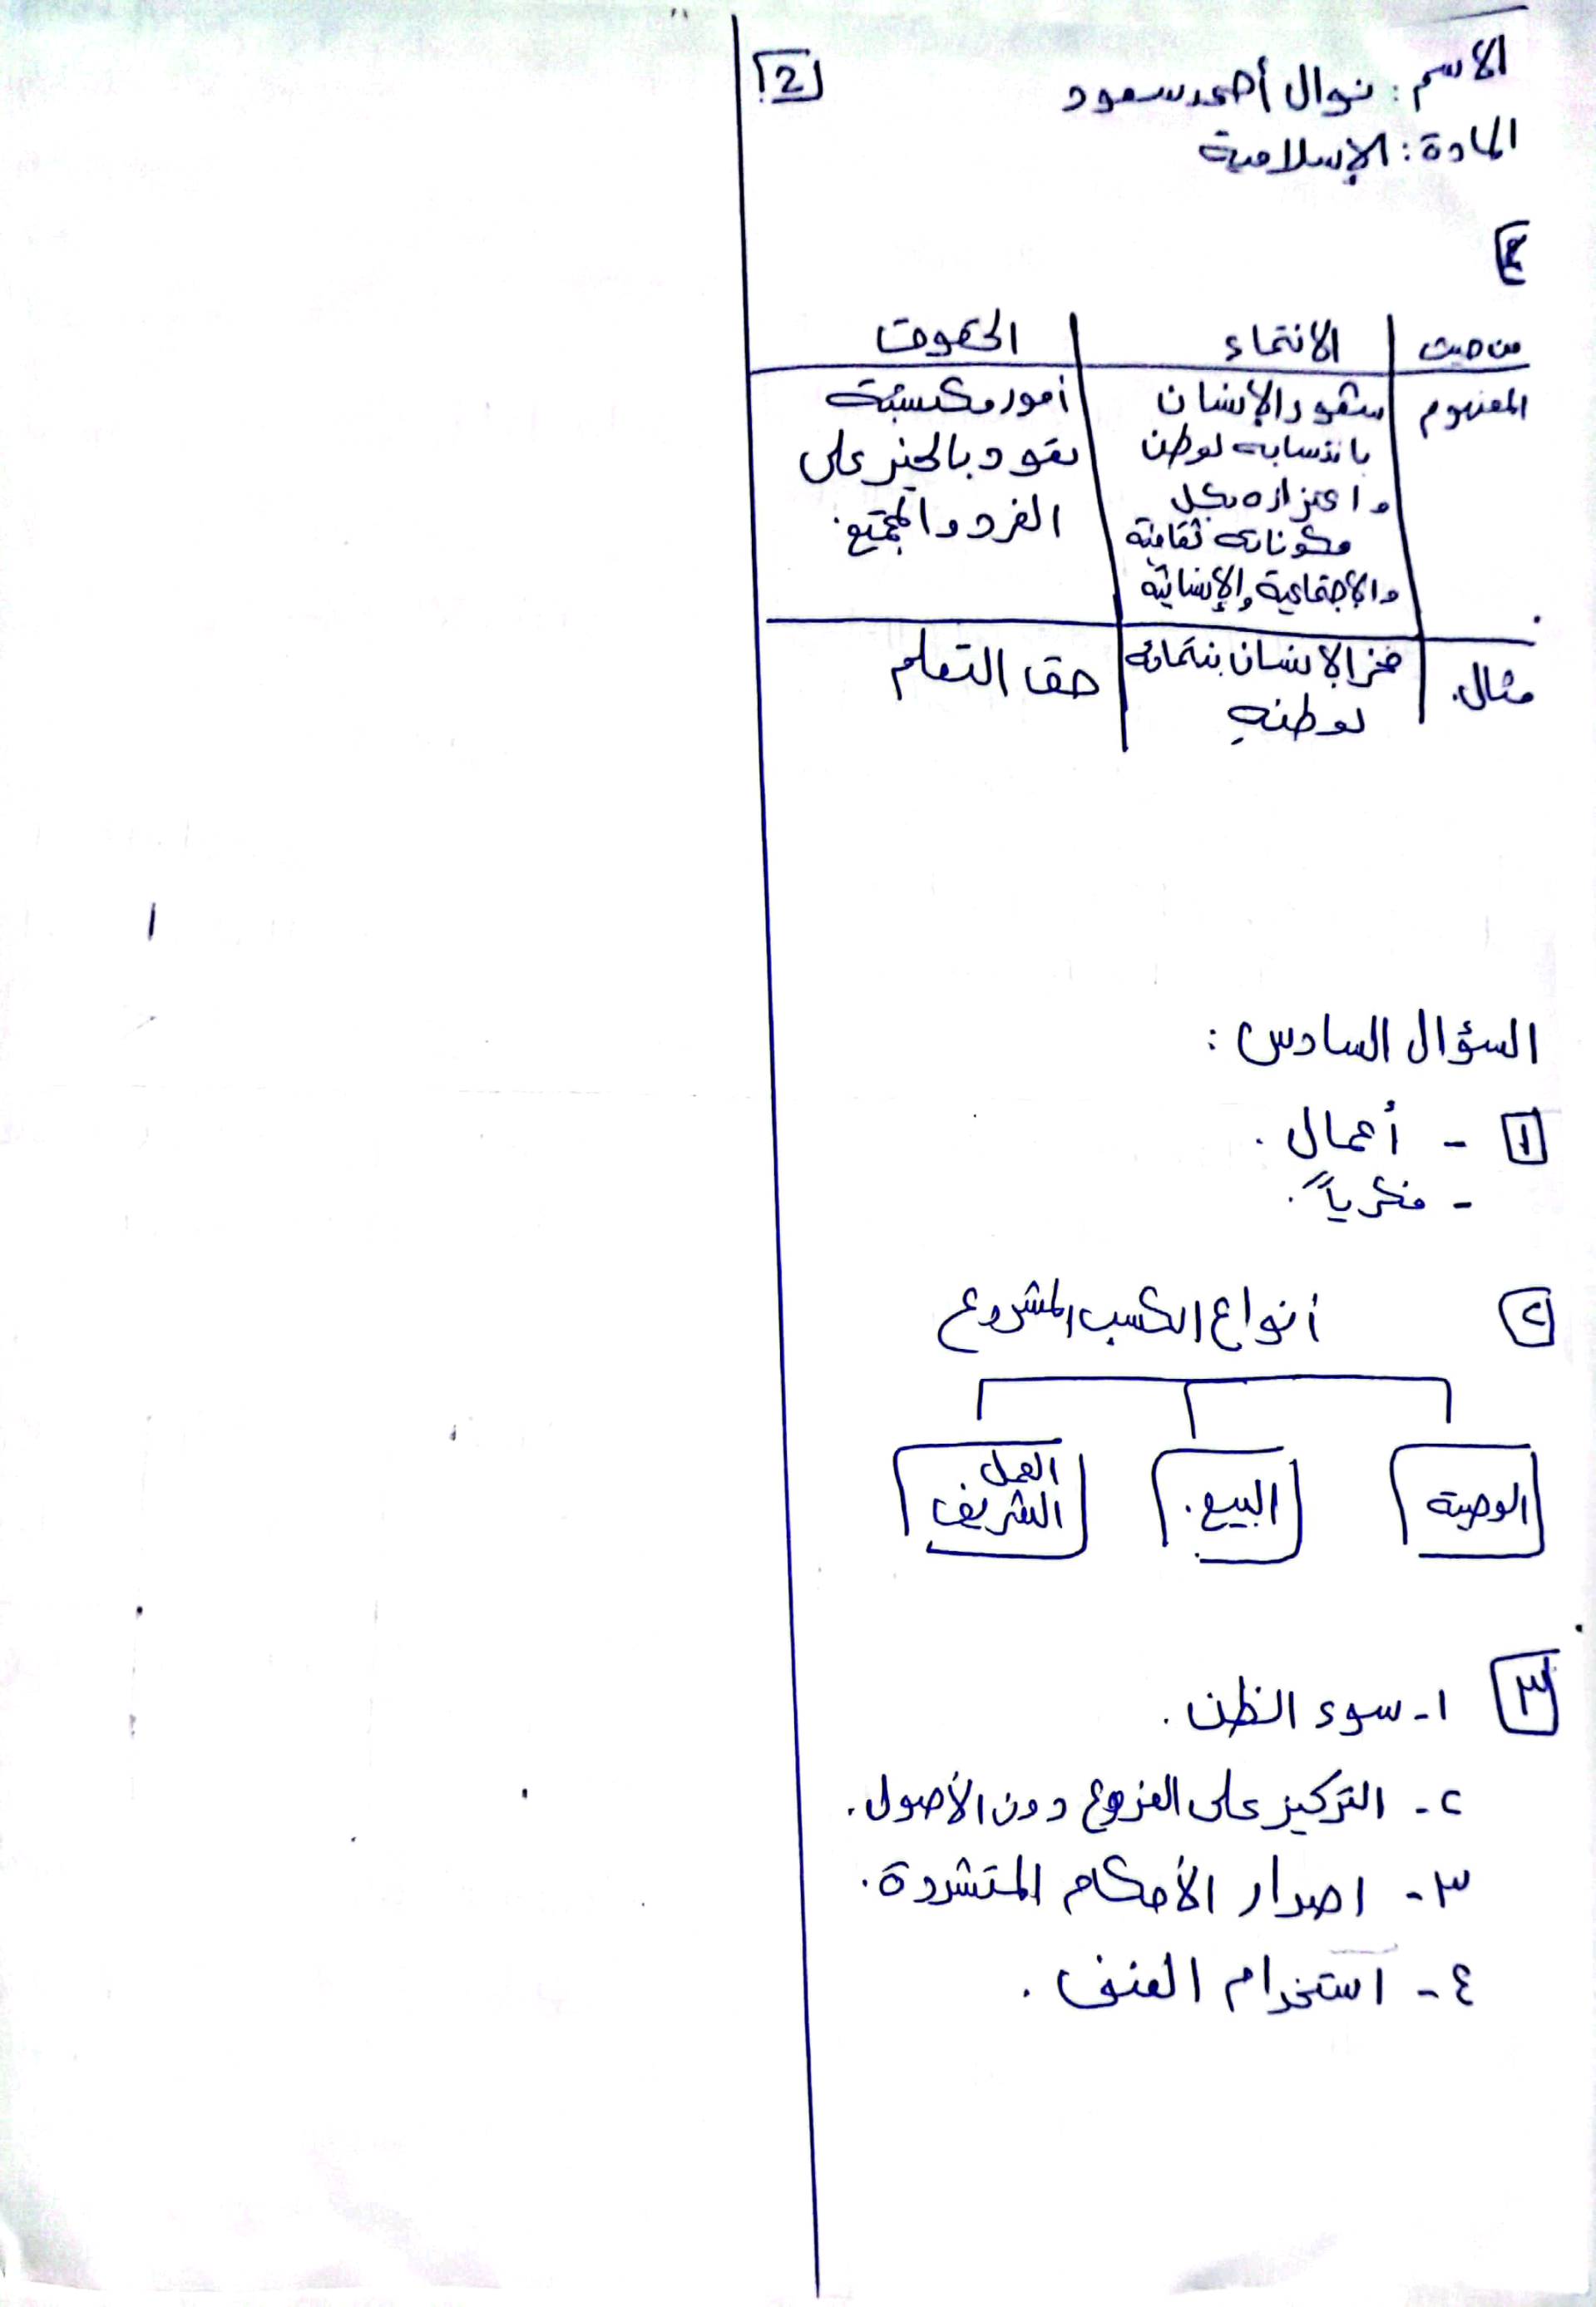 الاسم : نوال أحمد سعود
[2]
المادة : الإسلامية
من حيث | الانتماء | الحقوق
المفهوم | شعور الإنسان بانتسابه لوطن واعتزازه بكل مكوناته ثقافية والاجتماعية والإنسانية | أمور مكتسبة تعود بالخير على الفرد والمجتمع.
مثال. | فخر الإنسان بنتمائه لوطنهِ | حق التعلم
السؤال السادس :
[١] - أعمال .
- فكرياً .
[٢] أنواع الكسب المشروع
الوصية | البيع . | العمل الشريف
[٣] ١- سوء الظن .
٢- التركيز على الفروع دون الأصول .
٣- اصدار الأحكام المتشددة .
٤- استخدام العنف .